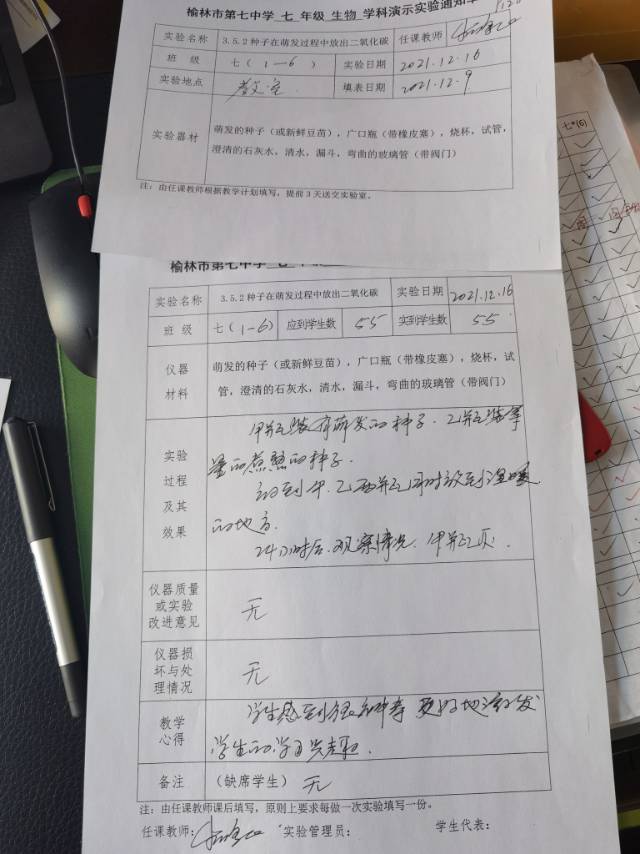 榆林市第七中学 七 年级 生物 学科演示实验通知单
实验名称 3.5.2种子在萌发过程中放出二氧化碳 任课教师
班 级 七（1—6） 实验日期 2021.12.16
实验地点 教室 填表日期 2021.12.9
实验器材 萌发的种子（或新鲜豆苗），广口瓶（带橡皮塞），烧杯，试管，
澄清的石灰水，清水，漏斗，弯曲的玻璃管（带阀门）
注：由任课教师根据教学计划填写，提前3天送交实验室。
榆林市第七中学 七
实验名称 3.5.2种子在萌发过程中放出二氧化碳 实验日期 2021.12.16
班 级 七（1—6） 应到学生数 55 实到学生数 55
仪器材料 萌发的种子（或新鲜豆苗），广口瓶（带橡皮塞），烧杯，试
管，澄清的石灰水，清水，漏斗，弯曲的玻璃管（带阀门）
实验过程及其效果
甲瓶装有萌发的种子．乙瓶装等
量的煮熟的种子．
甲．乙两瓶同时放到温暖
的地方．
24小时后．观察情况．甲瓶
仪器质量或实验改进意见 无
仪器损坏与处理情况 无
教学心得 学生感到 更好地激发
学生的学习兴趣．
备注 （缺席学生） 无
注：由任课教师课后填写，原则上要求每做一次实验填写一份。
任课教师： 实验管理员： 学生代表：
七(6)